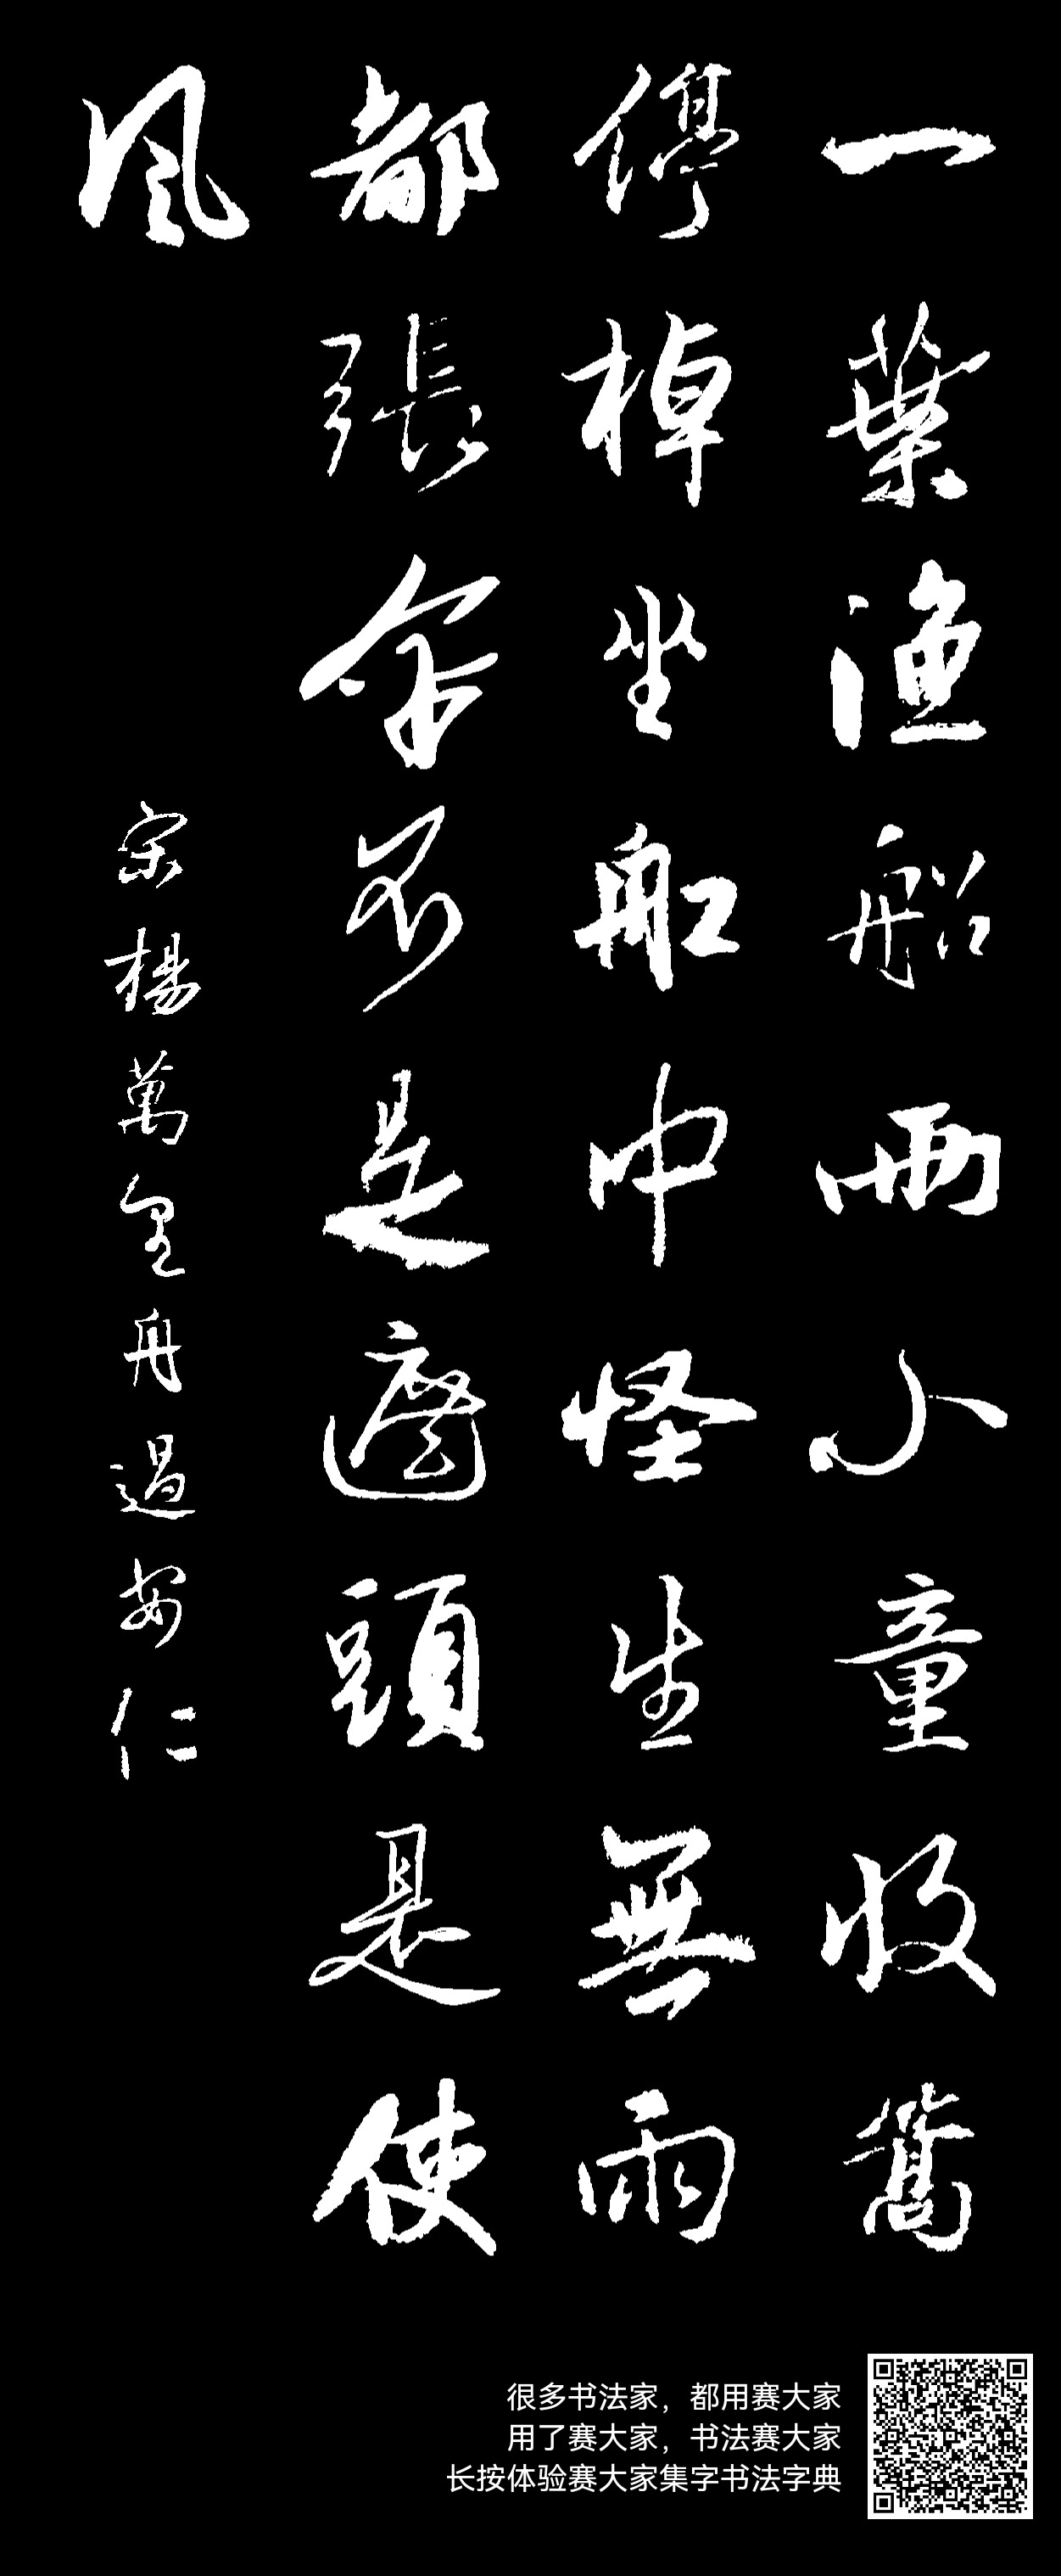 一葉渔船兩小童收篙
停棹坐舡中怪生無雨
都張伞不是遮頭是使
風
宋楊萬里舟過安仁
很多书法家，都用赛大家
用了赛大家，书法赛大家
长按体验赛大家集字书法字典